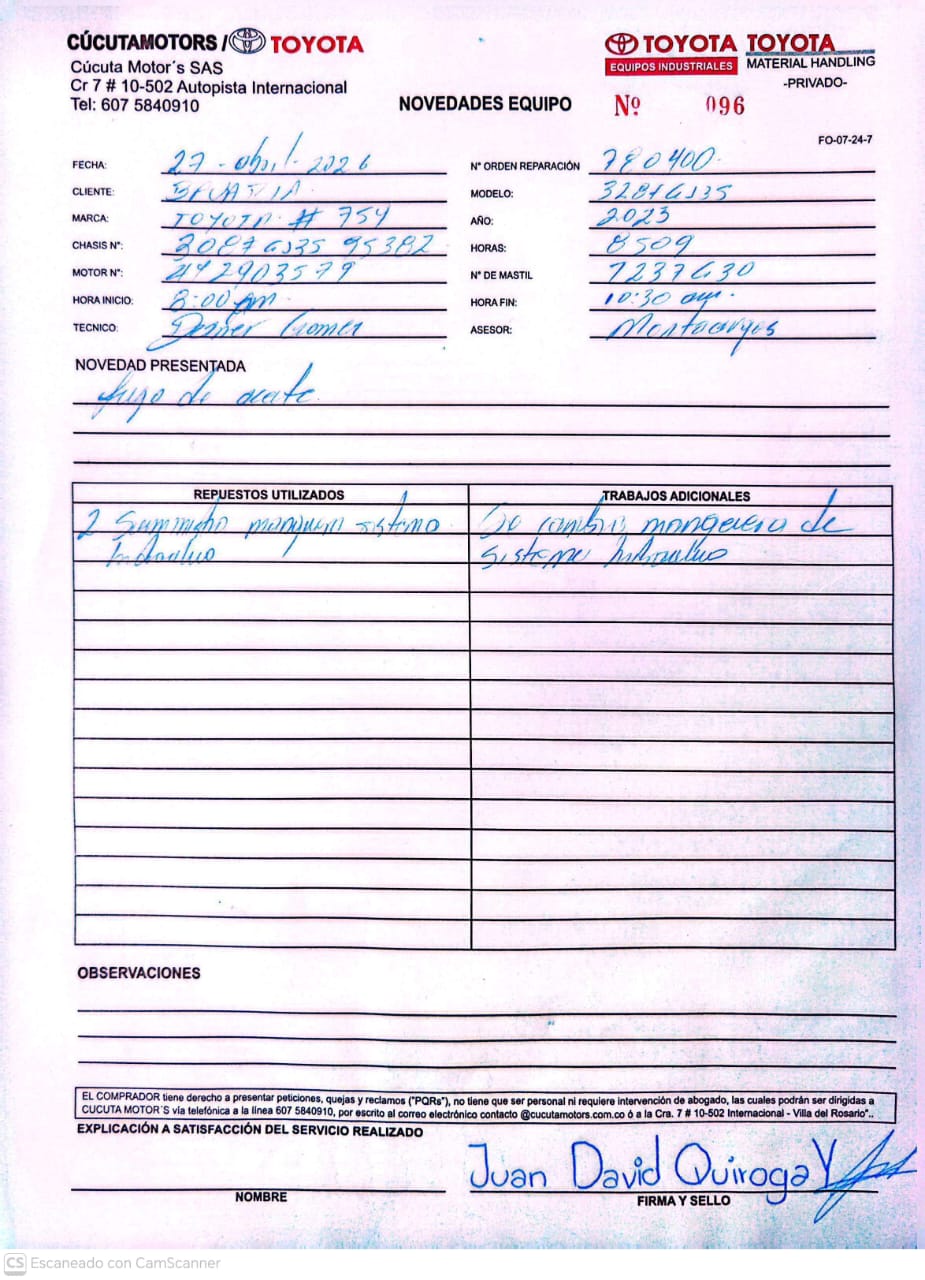 CÚCUTAMOTORS / TOYOTA
Cúcuta Motor´s SAS
Cr 7 # 10-502 Autopista Internacional
Tel: 607 5840910
NOVEDADES EQUIPO
TOYOTA
EQUIPOS INDUSTRIALES
TOYOTA
MATERIAL HANDLING
-PRIVADO-
Nº 096
FO-07-24-7
FECHA: 27 - abril - 2026
N° ORDEN REPARACIÓN 780400
CLIENTE:
MODELO:
MARCA: TOYOTA # 754
AÑO: 2023
CHASIS N°:
HORAS: 8509
MOTOR N°:
N° DE MASTIL
HORA INICIO: 8:00
HORA FIN: 10:30 am.
TECNICO: Gomez
ASESOR: Montacargas
NOVEDAD PRESENTADA
fuga de aceite
REPUESTOS UTILIZADOS
TRABAJOS ADICIONALES
2 sistema
Se cambia manguera de
sistema
OBSERVACIONES
EL COMPRADOR tiene derecho a presentar peticiones, quejas y reclamos ("PQRs"), no tiene que ser personal ni requiere intervención de abogado, las cuales podrán ser dirigidas a
CUCUTA MOTOR´S vía telefónica a la línea 607 5840910, por escrito al correo electrónico contacto @cucutamotors.com.co ó a la Cra. 7 # 10-502 Internacional - Villa del Rosario"..
EXPLICACIÓN A SATISFACCIÓN DEL SERVICIO REALIZADO
Juan David Quiroga Y
NOMBRE
FIRMA Y SELLO
CS Escaneado con CamScanner